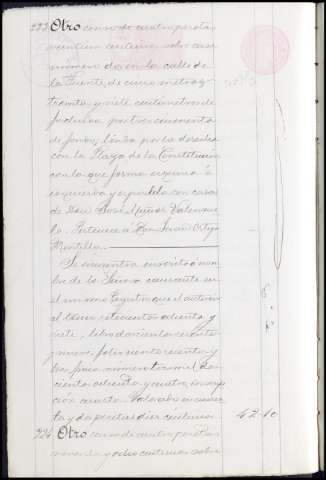 223 Otro censo de cuatro pesetas
veintiun centimos sobre casa
numero do en la calle de
la Fuente, de cinco metros y
treinta y siete centimetros de
fachada por tres cincuenta
de fondo, linda por la derecha
con la Plaza de la Constitucion
con la que forma esquina é
izquierda y espalda con casa
de Don José Muñoz Valenzue
la. Pertenece á Don Juan Ortega
Montilla.
Se encuentra inscrito á nom
bre de la Señora causante en
el mismo Registro que el anterior
al tomo setecientos ochenta y
siete, libro doscientos sesenta
y nueve, folio ciento sesenta y
tres, finca numero trece mil dos
cientos ochenta y cuatro, inscrip
cion cuarta. Valorado en cuaren
ta y dos pesetas diez centimos 42.10
224 Otro censo de cuatro pesetas
noventa y ocho centimos sobre